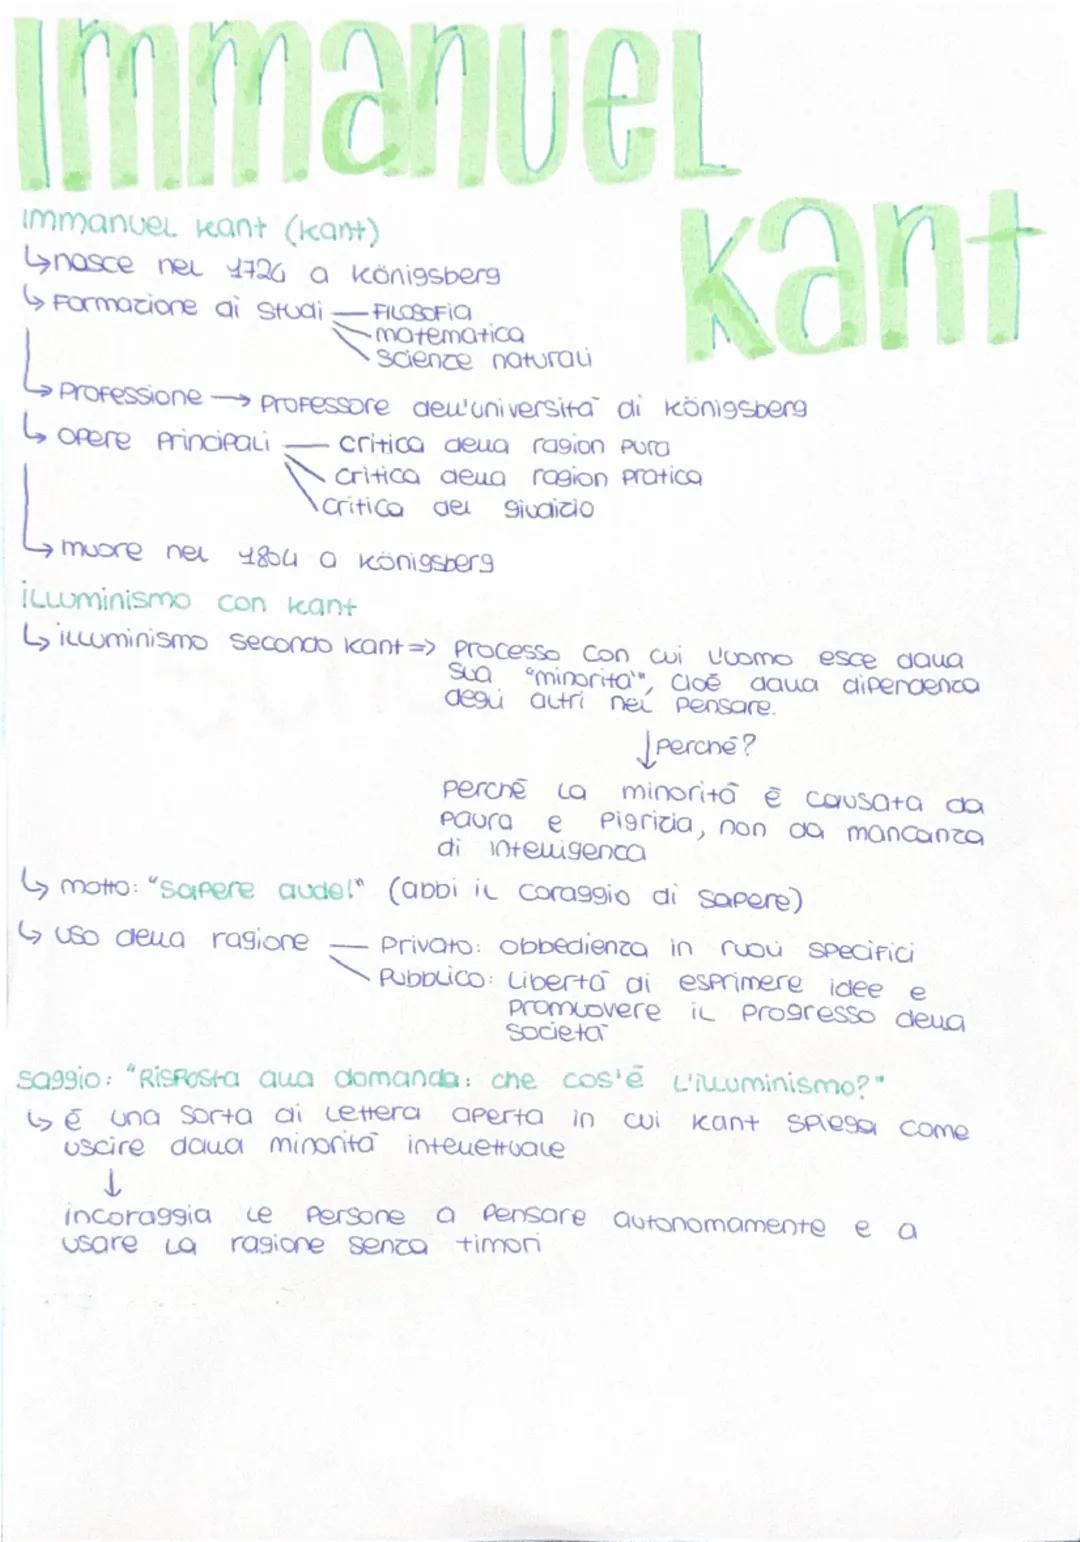 Immanuel
Kant
Immanuel Kant (Kant)
↳ nasce nel 1724 a Königsberg
↳ Formazione di studi — Filosofia
matematica
scienze naturali
↳ Professione → Professore dell'università di Königsberg
↳ opere Principali — critica della ragion pura
critica della ragion pratica
critica del giudizio
↳ muore nel 1804 a Königsberg
illuminismo con Kant
↳ illuminismo secondo Kant => Processo con cui l'uomo esce dalla
sua "minorità", cioè dalla dipendenza
degli altri nel pensare.
↓ Perché?
Perché la minorità è causata da
paura e pigrizia, non da mancanza
di intelligenza
↳ motto: "sapere aude!" (abbi il coraggio di sapere)
↳ uso della ragione — Privato: obbedienza in ruoli specifici
Pubblico: libertà di esprimere idee e
promuovere il progresso della
società
saggio: "Risposta alla domanda: che cos'è l'illuminismo?"
↳ è una sorta di lettera aperta in cui Kant spiega come
uscire dalla minorità intellettuale
↓
incoraggia le persone a pensare autonomamente e a
usare la ragione senza timori